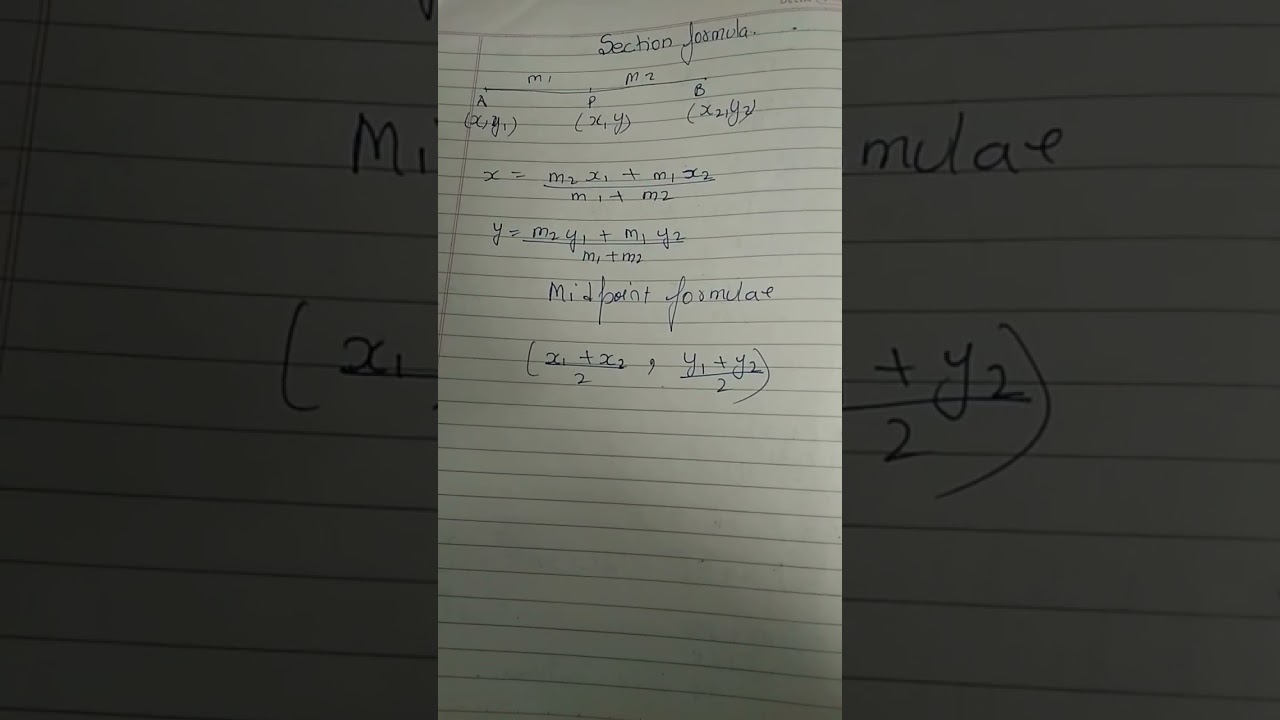 Section formula.
m1 m2
A P B
(x1,y1) (x,y) (x2,y2)
x = m2 x1 + m1 x2
m1 + m2
y = m2 y1 + m1 y2
m1 + m2
Midpoint formulae
(x1 + x2 , y1 + y2)
2 2